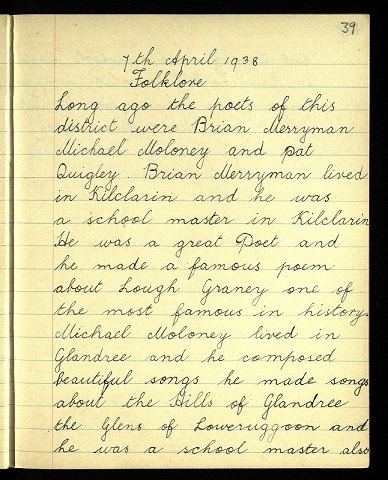 39
7th April 1938
Folklore
Long ago the poets of this
district were Brian Merryman
Michael Moloney and Pat
Quigley. Brian Merryman lived
in Kilclarin and he was
a school master in Kilclarin
He was a great Poet and
he made a famous poem
about Lough Graney one of
the most famous in history.
Michael Moloney lived in
Glandree and he composed
beautiful songs he made songs
about the Hills of Glandree
the Glens of Loweruggoon and
he was a school master also